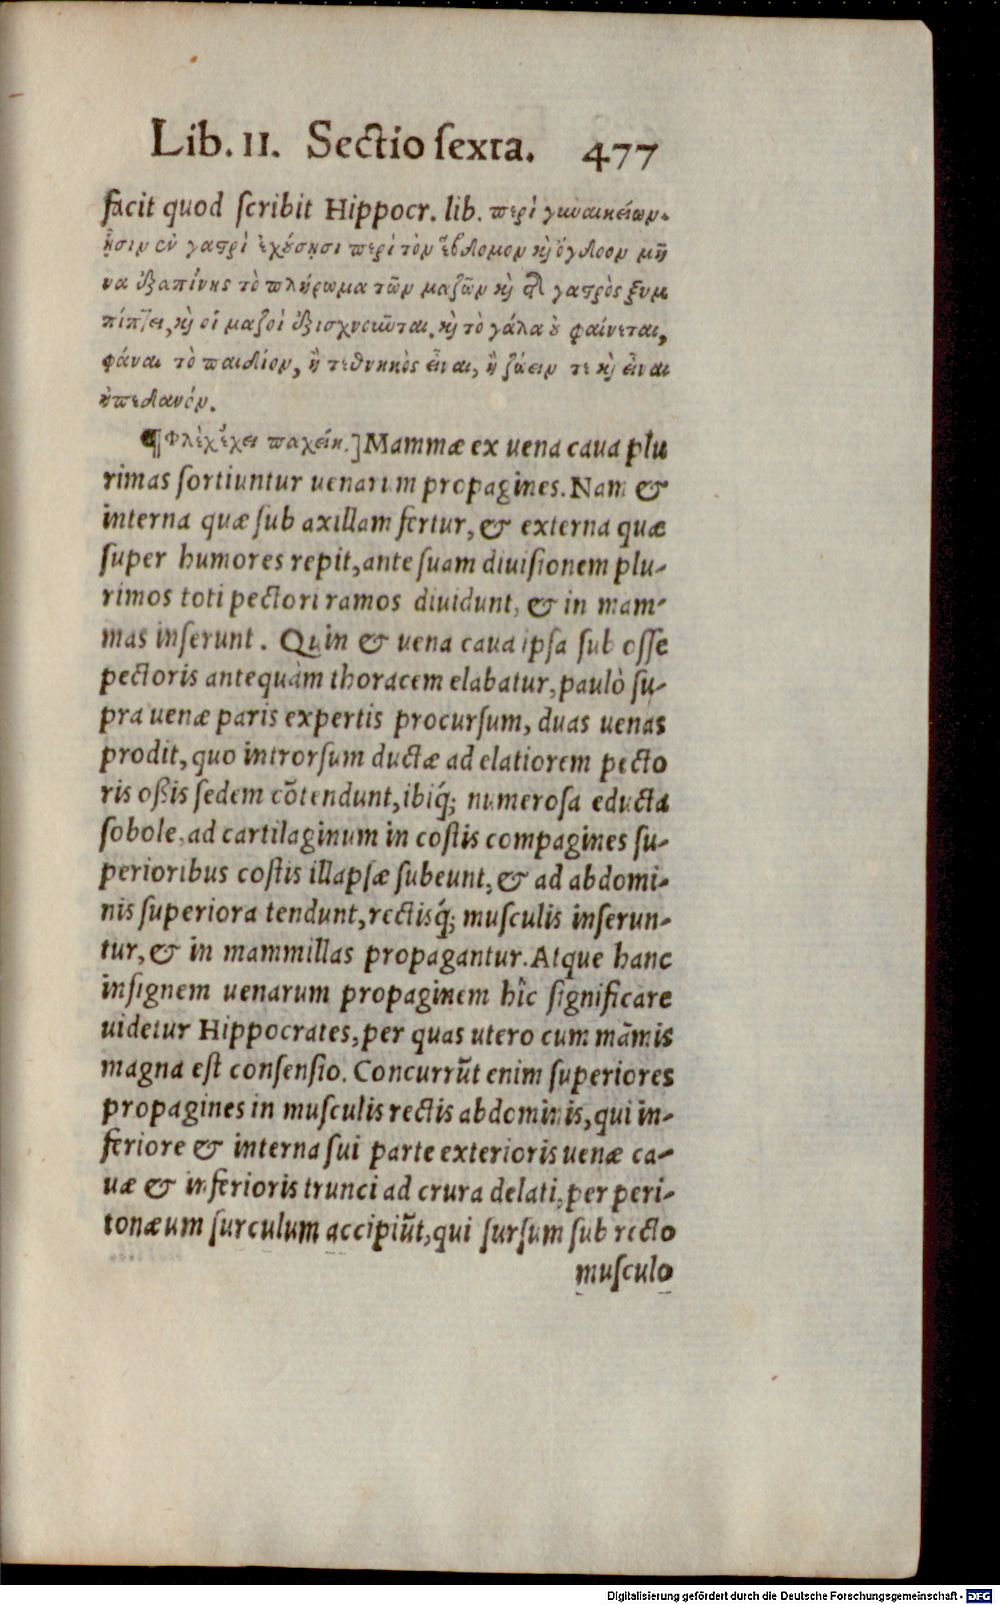 Lib. II. Sectio sexta. 477
facit quod scribit Hippocr. lib. περὶ γυναικείων.
ᾗσιν ἐν γαστρὶ ἐχούσῃσι περὶ τὸν ἕβδομον καὶ ὄγδοον μῆ
να ἐξαπίνης τὸ πλήρωμα τῶν μαζῶν καὶ τῆς γαστρὸς ξυμ
πίπτει, καὶ οἱ μαζοὶ ἐξισχνοῦνται, καὶ τὸ γάλα οὐ φαίνεται,
φάναι τὸ παιδίον, ἢ τεθνηκὸς εἶναι, ἢ ζώειν τε καὶ εἶναι
ἠπεδανόν.
¶ Φλὲψ ἔχει παχείη.] Mammæ ex uena caua plu
rimas sortiuntur uenarum propagines. Nam &
interna quæ sub axillam fertur, & externa quæ
super humores repit, ante suam diuisionem plu-
rimos toti pectori ramos diuidunt, & in mam-
mas inserunt. Quin & uena caua ipsa sub osse
pectoris antequàm thoracem elabatur, paulò su-
pra uenæ paris expertis procursum, duas uenas
prodit, quo introrsum ductæ ad elatiorem pecto
ris oßis sedem cōtendunt, ibiq́; numerosa educta
sobole, ad cartilaginum in costis compagines su-
perioribus costis illapsæ subeunt, & ad abdomi-
nis superiora tendunt, rectisq́; musculis inserun-
tur, & in mammillas propagantur. Atque hanc
insignem uenarum propaginem hîc significare
uidetur Hippocrates, per quas utero cum mãmis
magna est consensio. Concurrūt enim superiores
propagines in musculis rectis abdominis, qui in-
feriore & interna sui parte exterioris uenæ ca-
uæ & inferioris trunci ad crura delati, per peri-
tonæum surculum accipiūt, qui sursum sub recto
musculo
Digitalisierung gefördert durch die Deutsche Forschungsgemeinschaft - DFG